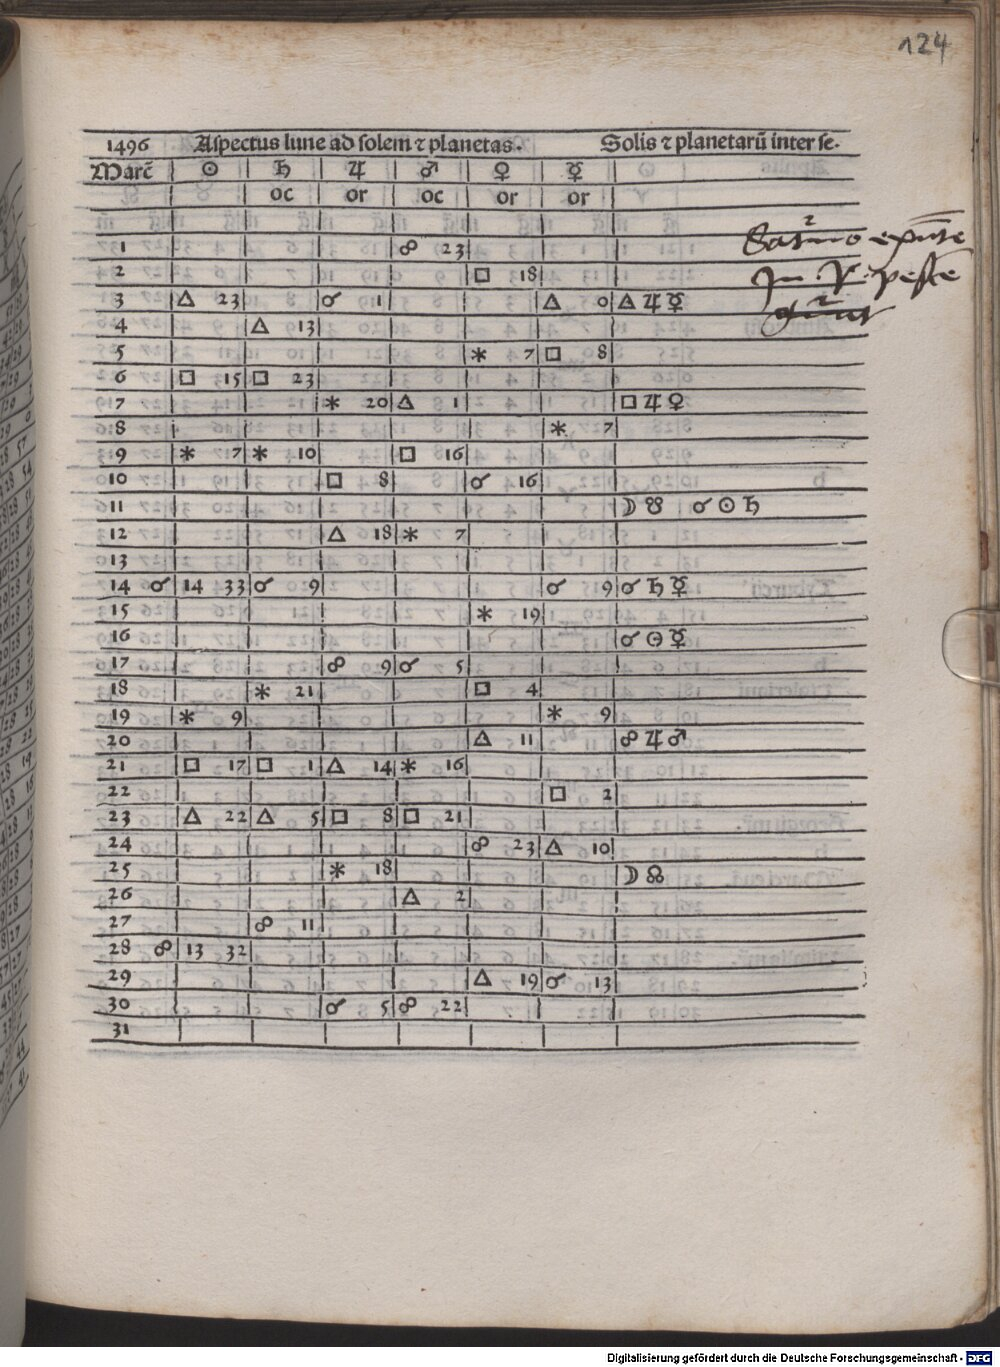 124
1496 Aspectus lune ad solem ⁊ planetas. Solis ⁊ planetarū inter se.
Marc̄ ☉ ♄ ♃ ♂ ♀ ☿
oc or oc or or
1 ☍ 23
2 □ 18
3 △ 23 ☌ 1 △ 0 △ ♃ ☿
4 △ 13
5 ⚹ 7 □ 8
6 □ 15 □ 23
7 ⚹ 20 △ 1 □ ♃ ♀
8 ⚹ 7
9 ⚹ 7 ⚹ 10 □ 16
10 □ 8 ☌ 16
11 ☽ ☋ ☌ ☉ ♄
12 △ 18 ⚹ 7
13
14 ☌ 14 33 ☌ 9 ☌ 9 ☌ ♄ ☿
15 ⚹ 19
16 ☌ ☉ ☿
17 ☍ 9 ☌ 5
18 ⚹ 21 □ 4
19 ⚹ 9 ⚹ 9
20 △ 11 ☍ ♃ ♂
21 □ 17 □ 1 △ 14 ⚹ 16
22 □ 2
23 △ 22 △ 5 □ 8 □ 21
24 ☍ 23 △ 10
25 ⚹ 18 ☽ ☊
26 △ 2
27 ☍ 11
28 ☍ 13 32
29 △ 19 ☌ 13
30 ☌ 5 ☍ 22
31
Digitalisierung gefördert durch die Deutsche Forschungsgemeinschaft - DFG